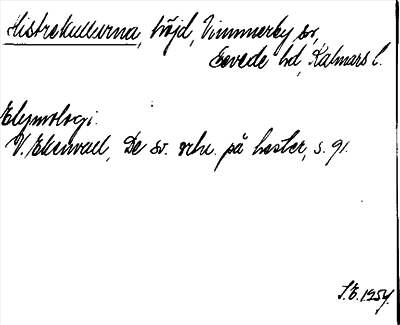 Histrekullarna, höjd, Vimmerby sn,
Sevede hd, Kalmars l.
Etymologi:
V. Ekenvall, De sv. ortn. på hester, s. 91.
S.E. 1954.